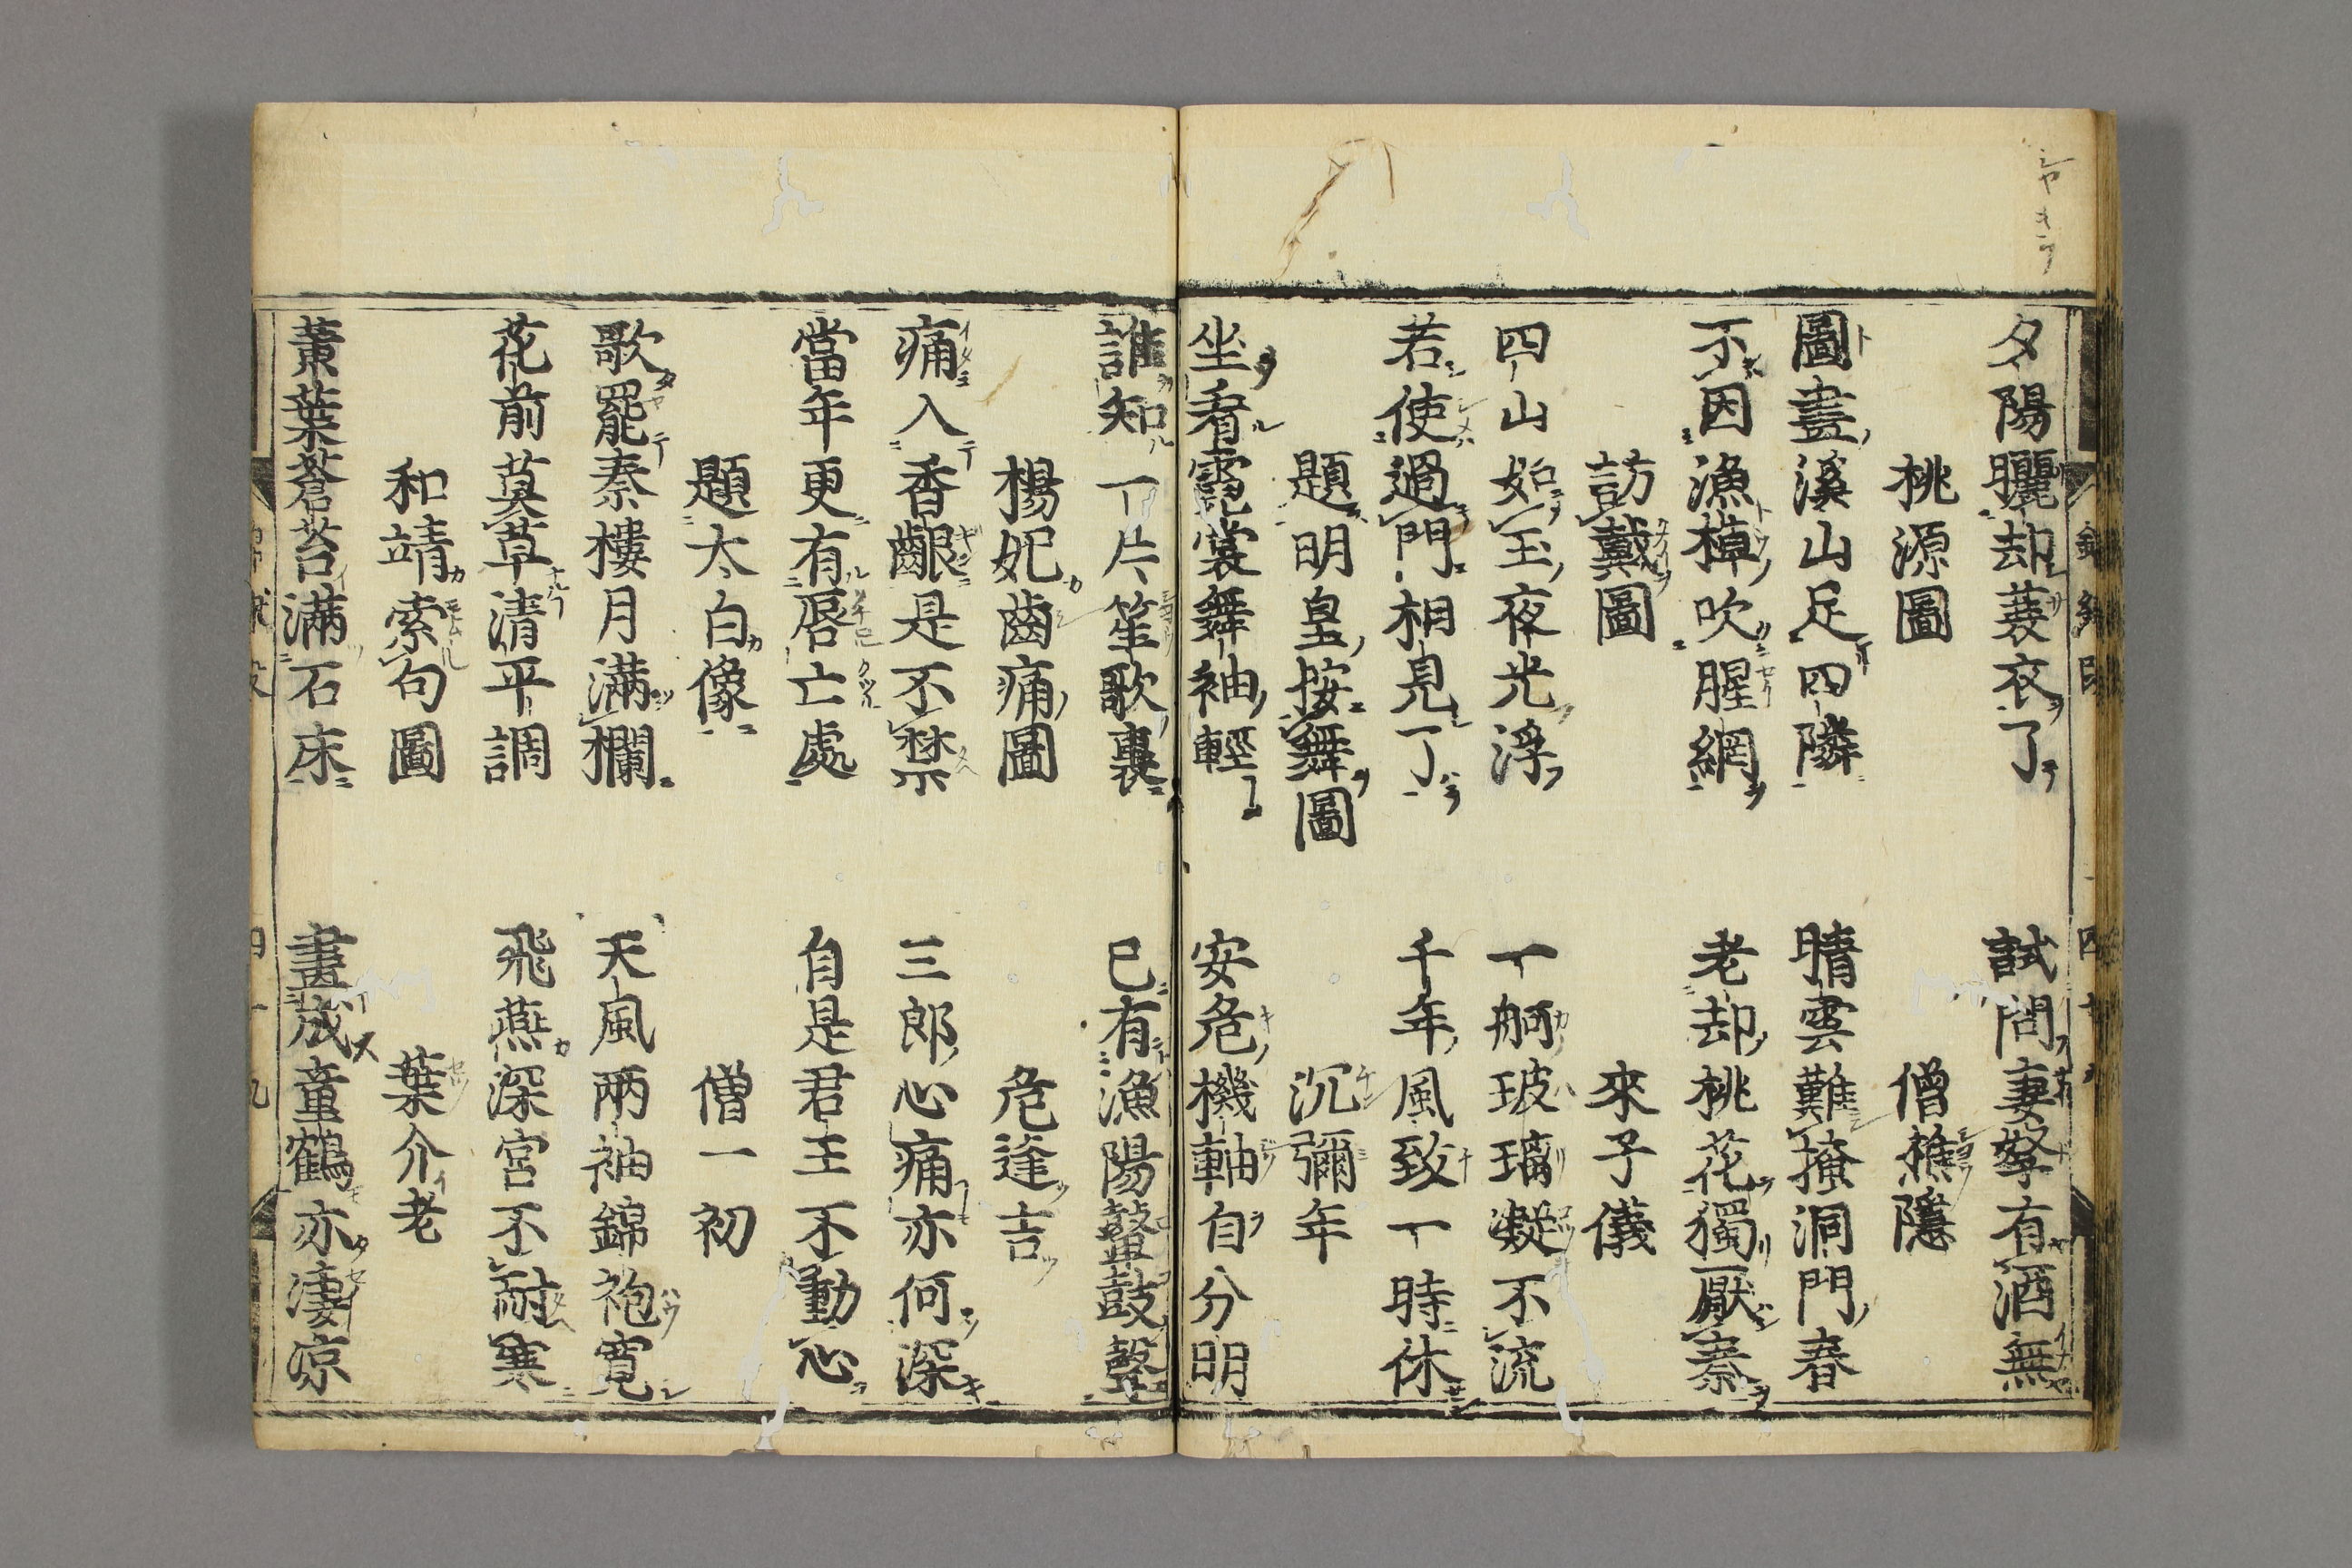 夕陽曬却蓑衣了　試問妻孥有酒無
桃源圖　僧樵隱
圖畫溪山足四隣　晴雲難掩洞門春
不因漁棹吹腥網　老却桃花獨厭秦
訪戴圖　來子儀
四山如玉夜光浮　一舸玻璃凝不流
若使過門相見了　千年風致一時休
題明皇按舞圖　沉彌年
坐看霓裳舞袖輕　安危機軸自分明
誰知一片笙歌裏　已有漁陽鼙鼓聲
楊妃齒痛圖　危逢吉
痛入香齦是不禁　三郎心痛亦何深
當年更有唇亡處　自是君王不動心
題太白像　僧一初
歌罷秦樓月滿欄　天風兩袖錦袍寬
花前莫草清平調　飛燕深宮不耐寒
和靖索句圖　葉介老
黃葉蒼苔滿石床　畫成童鶴亦凄凉